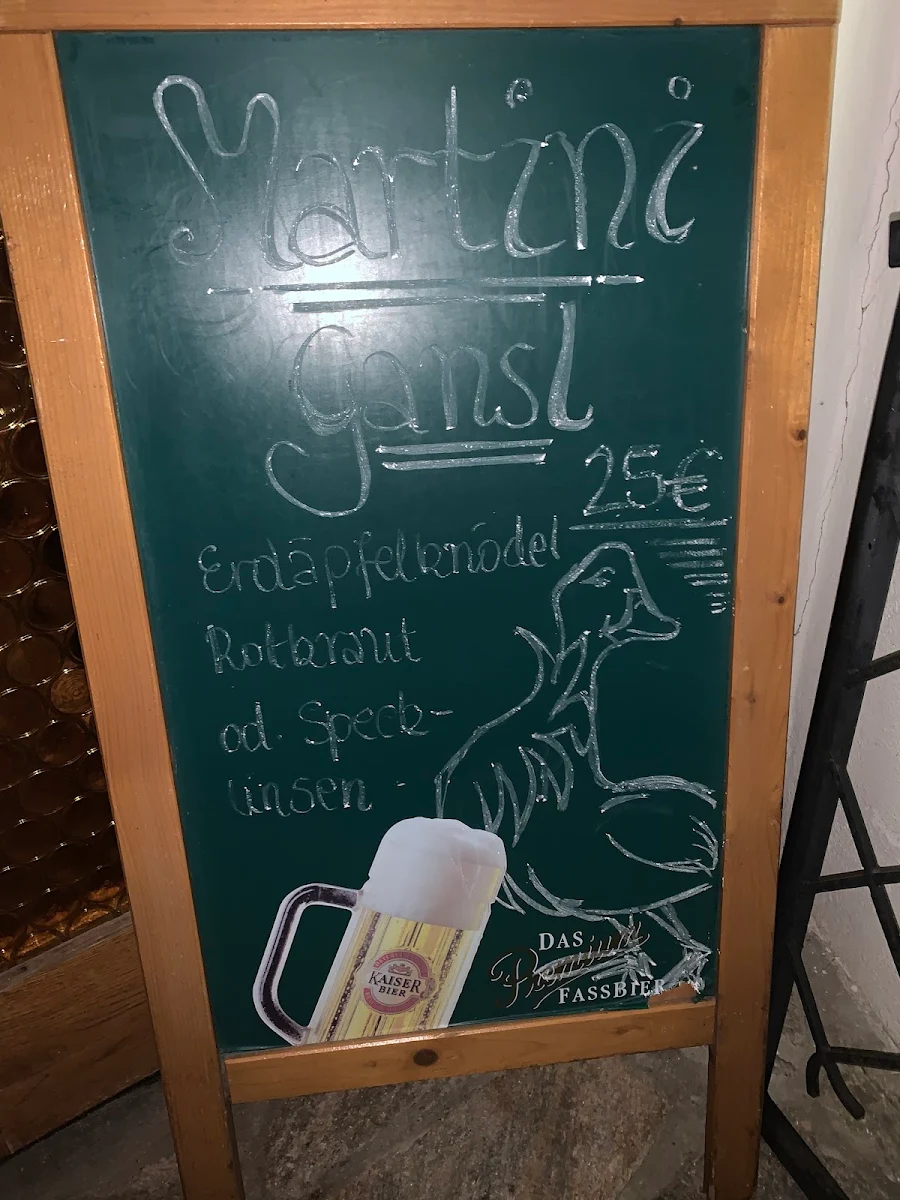 Martini
Gansl
25€
Erdäpfelknödel
Rotkraut
od. Speck-
linsen -
KAISER
BIER
DAS
Premium
FASSBIER